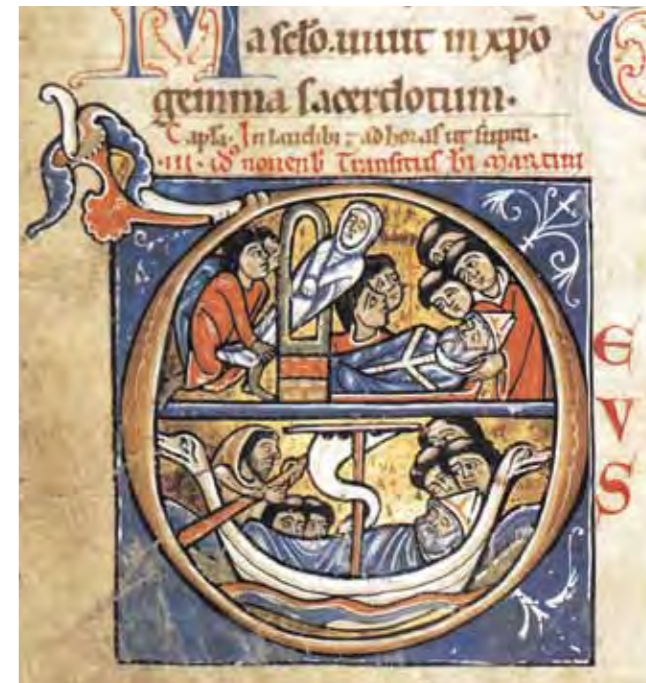 Ma sclo. uiuit in xp̄o
gemma sacerdotum.
Capl'a. In laudibꝫ ; ad horas ut supra.
.III. id' nouenb' Transitus bi martini
D
E
V
S